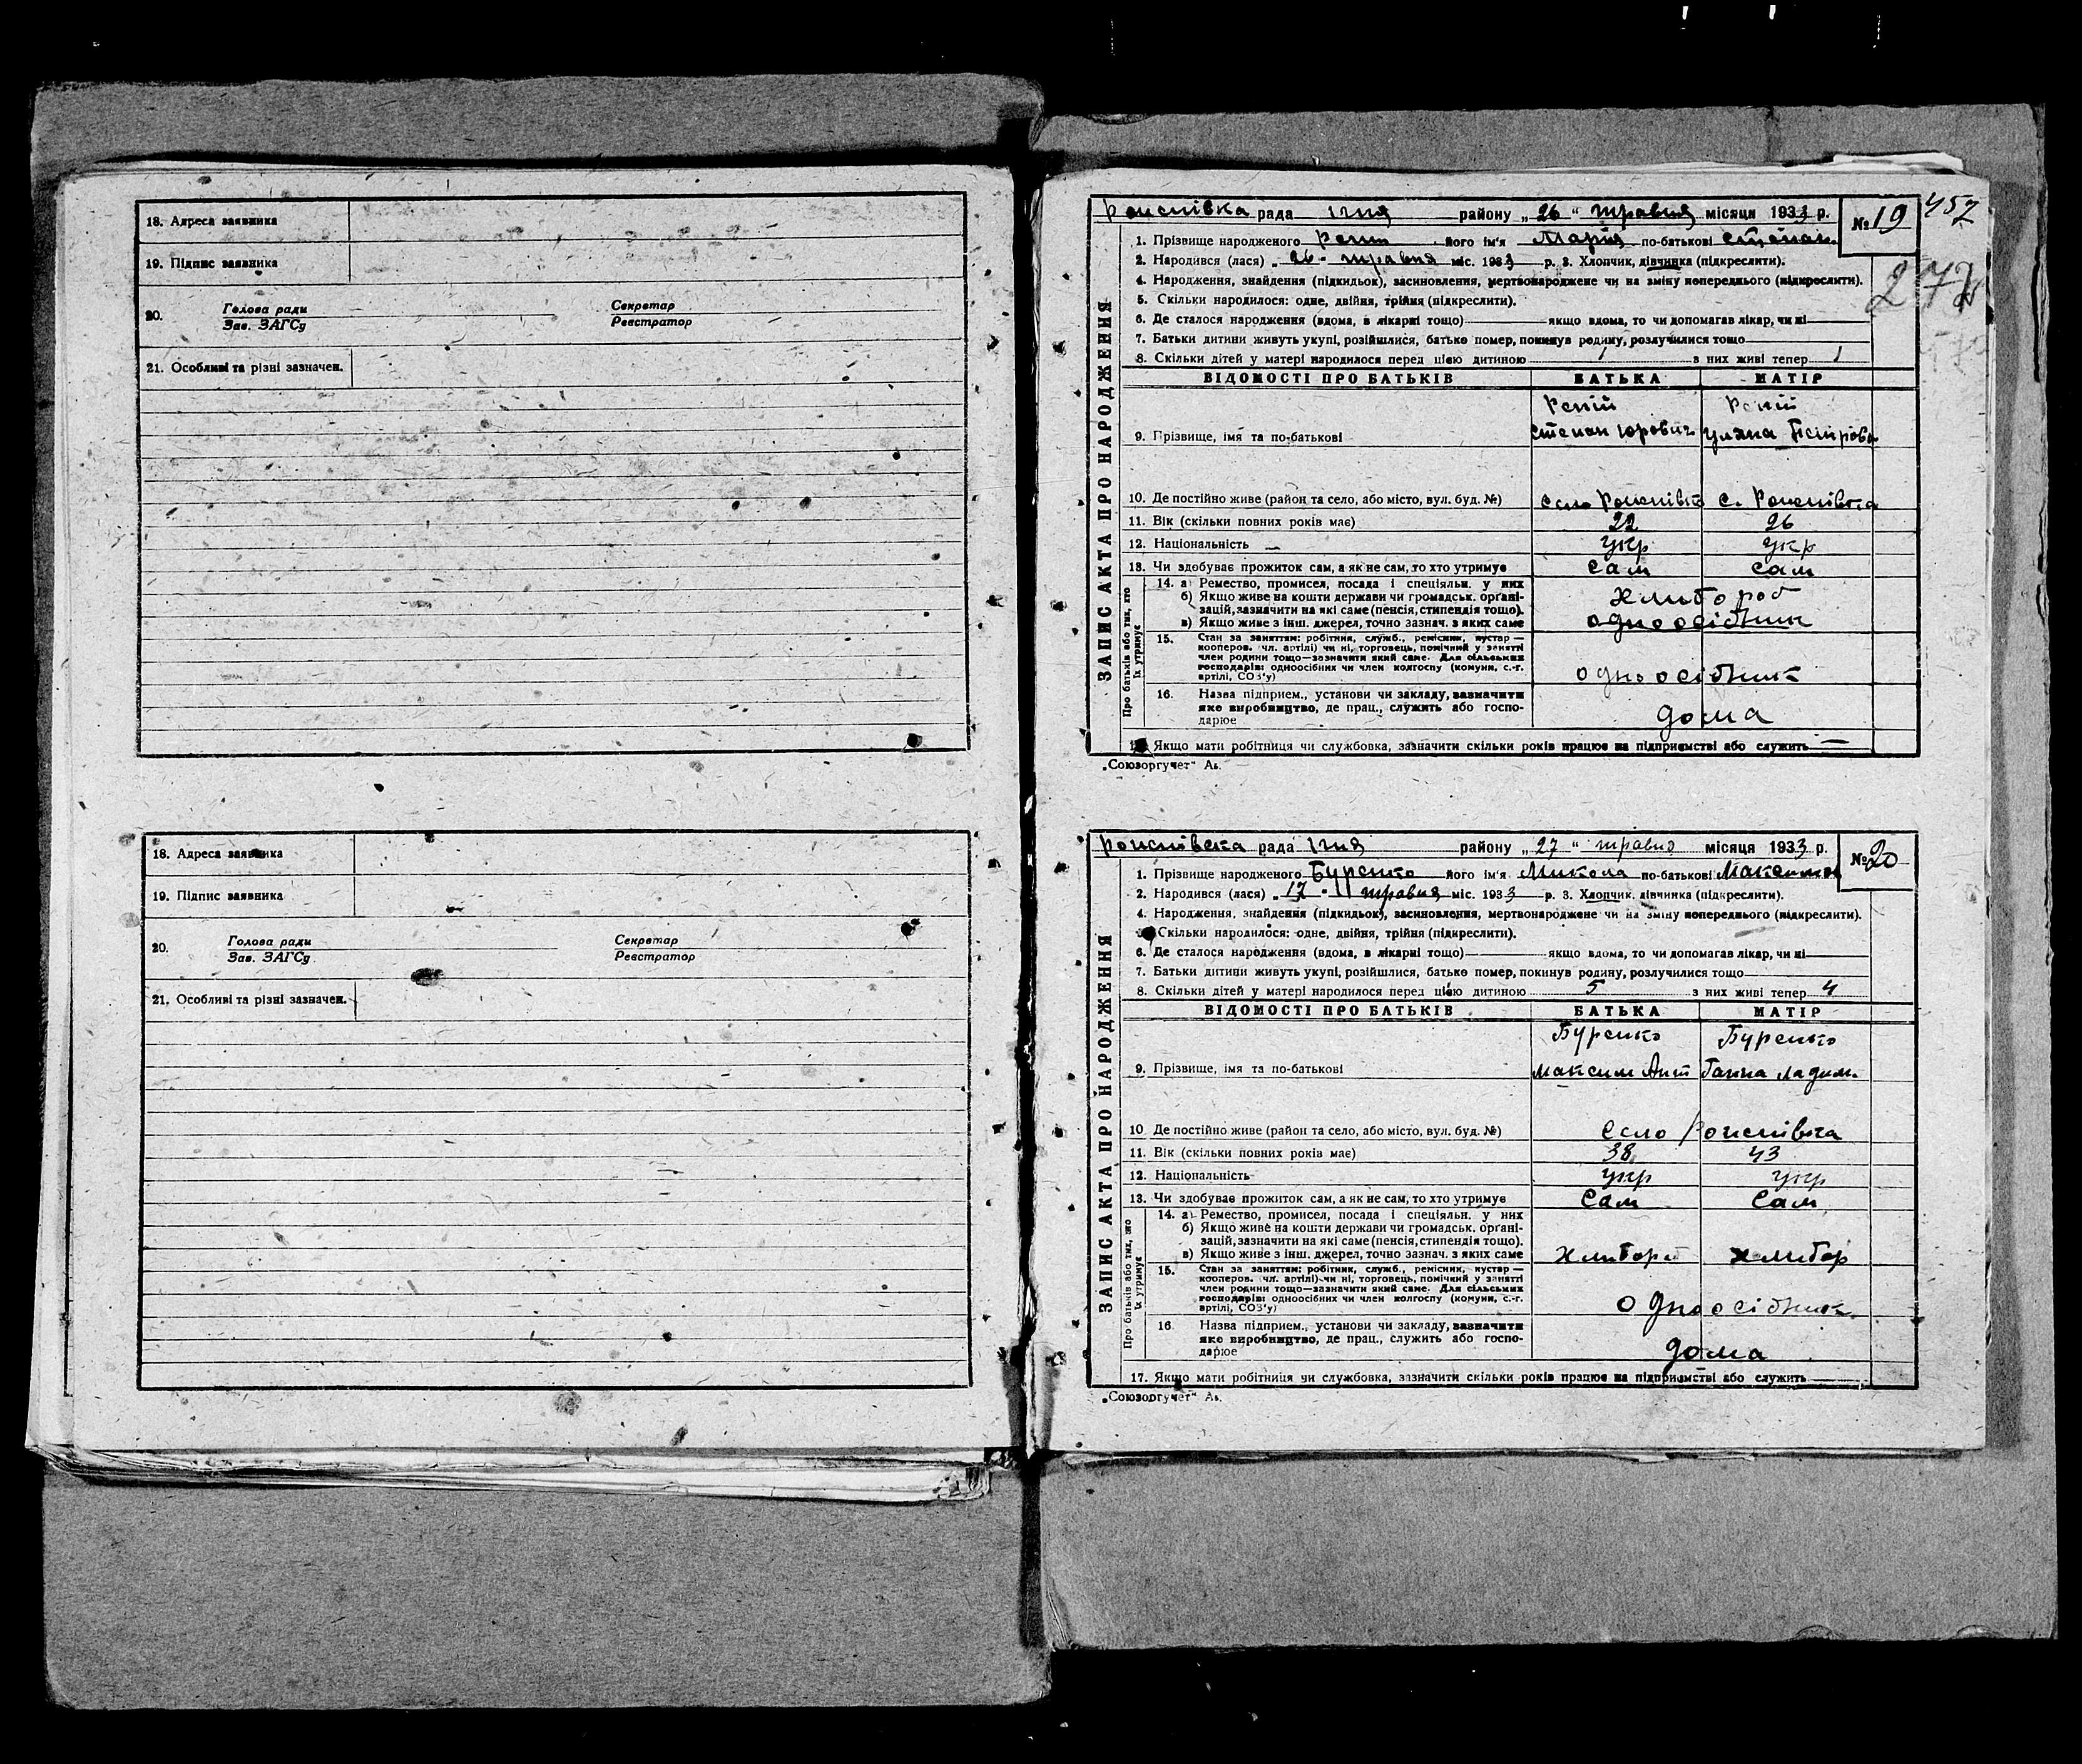 18. Адреса заявника
19. Підпис заявника
20. Голова ради Секретар
Зав. ЗАГСу Реєстратор
21. Особливі та різні зазначен.
18. Адреса заявника
19. Підпис заявника
20. Голова ради Секретар
Зав. ЗАГСу Реєстратор
21. Особливі та різні зазначен.
457
рада району „26" травня місяця 1933 р. №19
1. Прізвище народженого його ім'я Марія по-батькові Степан
2. Народився (лася) „26" травня міс. 1933 р. 3. Хлопчик, дівчинка (підкреслити).
4. Народження, знайдення (підкидьок), засиновлення, мертвонароджене чи на зміну попереднього (підкреслити).
5. Скільки народилося: одне, двійня, трійня (підкреслити).
6. Де сталося народження (вдома, в лікарні тощо) якщо вдома, то чи допомагав лікар, чи ні
7. Батьки дитини живуть укупі, розійшлися, батько помер, покинув родину, розлучилися тощо
8. Скільки дітей у матері народилося перед цією дитиною 1 з них живі тепер 1
ЗАПИС АКТА ПРО НАРОДЖЕННЯ
ВІДОМОСТІ ПРО БАТЬКІВ БАТЬКА МАТІР
9. Прізвище, імя та по-батькові Степан Юрович Уляна Петрівна
10. Де постійно живе (район та село, або місто, вул. буд. №) село с.
11. Вік (скільки повних років має) 22 26
12. Національність укр укр
13. Чи здобуває прожиток сам, а як не сам, то хто утримує сам сам
Про батьків або тих, хто їх утримує
14. а) Ремество, промисел, посада і спеціяльн. у них хлибороб
б) Якщо живе на кошти держави чи громадськ. органі-
зацій, зазначити на які саме (пенсія, стипендія тощо).
в) Якщо живе з інш. джерел, точно зазнач. з яких саме одноосібник
15. Стан за заняттям: робітник, служб., ремісник, кустар —
кооперов. (чл. артілі) чи ні, торговець, помічний у занятті
член родини тощо—зазначити який саме. Для сільських
господарів: одноосібних чи член колгоспу (комуни, с.-г. одноосібник
артілі, СОЗ'у)
16. Назва підприєм., установи чи закладу, зазначити
яке виробництво, де прац., служить або госпо- дома
дарює
Якщо мати робітниця чи службовка, зазначити скільки років працює на підприємстві або служить —
„Союзоргучет" Аб.
рада району „27" травня місяця 1933 р. №20
1. Прізвище народженого Буренко його ім'я Микола по-батькові Максимов
2. Народився (лася) „17" травня міс. 1933 р. 3. Хлопчик, дівчинка (підкреслити).
4. Народження, знайдення (підкидьок), засиновлення, мертвонароджене чи на зміну попереднього (підкреслити).
Скільки народилося: одне, двійня, трійня (підкреслити).
6. Де сталося народження (вдома, в лікарні тощо) якщо вдома, то чи допомагав лікар, чи ні
7. Батьки дитини живуть укупі, розійшлися, батько помер, покинув родину, розлучилися тощо
8. Скільки дітей у матері народилося перед цією дитиною 5 з них живі тепер 4
ЗАПИС АКТА ПРО НАРОДЖЕННЯ
ВІДОМОСТІ ПРО БАТЬКІВ БАТЬКА МАТІР
Буренко Буренко
9. Прізвище, імя та по-батькові Максим Ант Ганна
10. Де постійно живе (район та село, або місто, вул. буд. №) село
11. Вік (скільки повних років має) 38 43
12. Національність укр укр
13. Чи здобуває прожиток сам, а як не сам, то хто утримує Сам Сам
Про батьків або тих, хто їх утримує
14. а) Ремество, промисел, посада і спеціяльн. у них
б) Якщо живе на кошти держави чи громадськ. органі-
зацій, зазначити на які саме (пенсія, стипендія тощо).
в) Якщо живе з інш. джерел, точно зазнач. з яких саме хлибороб хлибор
15. Стан за заняттям: робітник, служб., ремісник, кустар —
кооперов. (чл. артілі) чи ні, торговець, помічний у занятті
член родини тощо—зазначити який саме. Для сільських
господарів: одноосібних чи член колгоспу (комуни, с.-г. одноосібник
артілі, СОЗ'у)
16. Назва підприєм., установи чи закладу, зазначити
яке виробництво, де прац., служить або госпо-
дарює дома
17. Якщо мати робітниця чи службовка, зазначити скільки років працює на підприємстві або служить
„Союзоргучет" Аб.